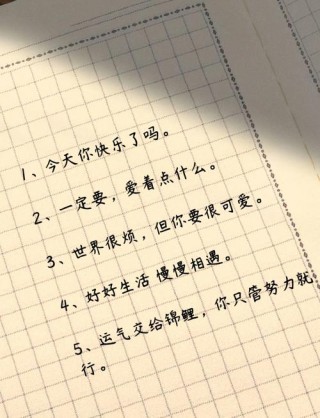 1、今天你快乐了吗。
2、一定要，愛着点什么。
3、世界很烦，但你要很可爱。
4、好好生活 慢慢相遇。
5、运气交给锦鲤，你只管努力就
行。